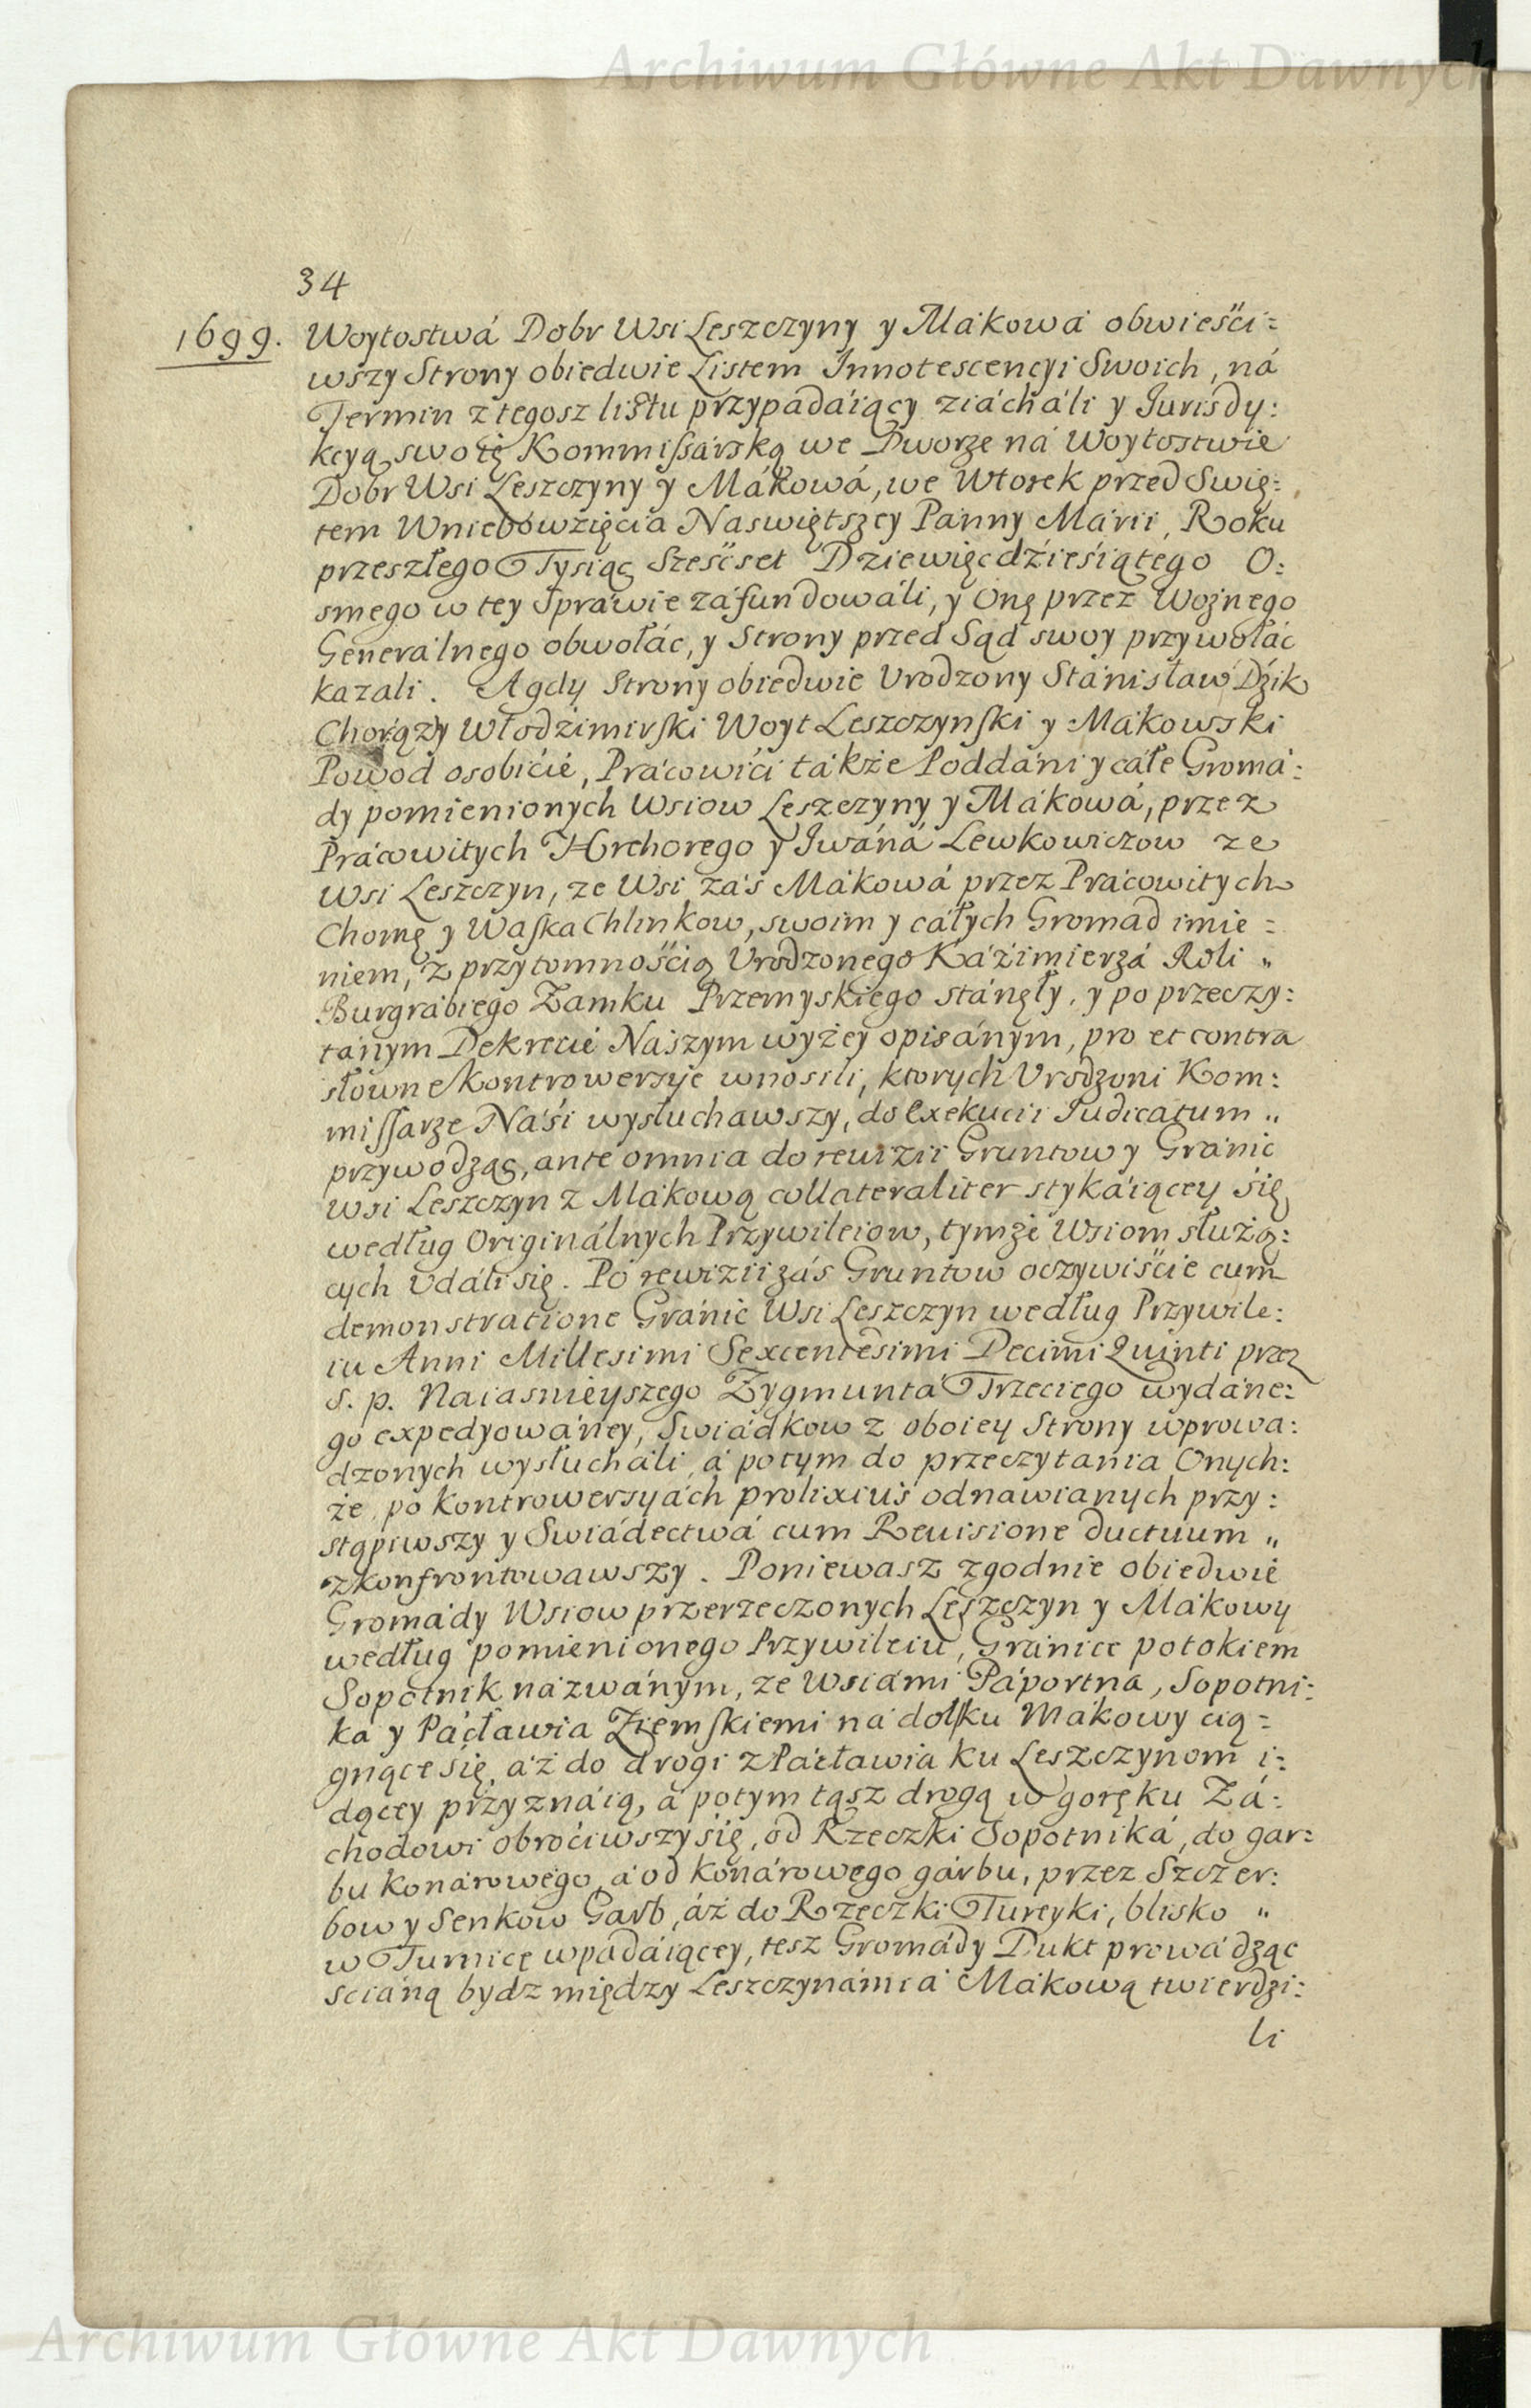 Archiwum Główne Akt Dawnych
34
1699. Woytostwá Dobr Wsi Leszczyny y Mákowá obwieści=
wszy Strony obiedwie Listem Innotescencyi Swoich, ná
Termin z tegosz listu przypadáiący ziácháli y Jurisdy:
kcyą swoię Kommissárską we Dworze ná Woytostwie
Dobr Wsi Leszczyny y Mákowá, we Wtorek przed Swię:
tem Wniebowzięcia Naswiętszey Panny Márii, Roku
przeszłego Tysiąc Sześćset Dziewięcdźieśiątego O:
smego w tey Spráwie záfundowáli, y Onę przez Woznego
Generálnego obwołác, y Strony przed Sąd swoy przywołác
kazali. A gdy Strony obiedwie Urodzony Stánisław Dźik
Chorązy Włodźimirski Woyt Leszczynski y Mákowski
Powod osobiście, Prácowići tákże Poddáni y cáłe Gromá:
dy pomienionych Wsiow Leszczyny y Mákowá, przez
Prácowitych Hrehorego y Iwáná Lewkowiczow ze
Wsi Leszczyn, ze Wsi záś Mákowá przez Prácowitych
Chomę y Waska Chlinkow, swoim y cáłych Gromad imie =
niem, z przytomnośćią Urodzonego Káźimierzá Roli „
Burgrábiego Zamku Przemyskiego stánęły, y po przeczy:
tánym Dekrecie Nászym wyżey opisánym, pro et contra
słowne kontrowersye wnosili, ktorych Urodzoni Kom:
missarze Náśi wysłuchawszy, do Exekucii Judicatum „
przywodząc, ante omnia do rewizii Gruntow y Gránic
Wsi Leszczyn z Mákową collateraliter stykáiącey się
według Originálnych Przywileiow, tymże Wsiom służą:
cych událi się. Po rewizii záś Gruntow oczywiście cum
demonstratione Gránic Wsi Leszczyn według Przywile:
iu Anni Millesimi Sexcentesimi Decimi Quinti przez
S. p. Naiasnieyszego Zygmuntá Trzeciego wydáne:
go expedyowáney, Swiádkow z oboiey Strony wprowa:
dzonych wysłucháli, á potym do przeczytania Onych:
że, po kontrowersyách prolixius odnawianych przy:
stąpiwszy y Swiádectwá cum Revisione ductuum „
zkonfrontowawszy. Poniewasz zgodnie obiedwie
Gromády Wsiow przerzeczonych Leszczyn y Mákowy
według pomienionego Przywileiu, Gránice potokiem
Sopotnik názwánym, ze Wsiámi Páportna, Sopotni:
ka y Pácławia Ziemskiemi ná dolsku Mákowy cią=
gnące się, áż do drogi z Pácławia ku Leszczynom i:
dącey przyznáią, á potym tąsz drogą w gorę ku Zá:
chodowi obroćiwszy się, od Rzeczki Sopotniká, do gar:
bu konárowego, á od konárowego gárbu, przez Szczer:
bow y Senkow Garb, áż do Rzeczki Tureyki, blisko „
w Turnicę wpadáiącey, tesz Gromády Dukt prowádząc
scianą bydz między Leszczynámi á Mákową twierdzi:
li
Archiwum Główne Akt Dawnych